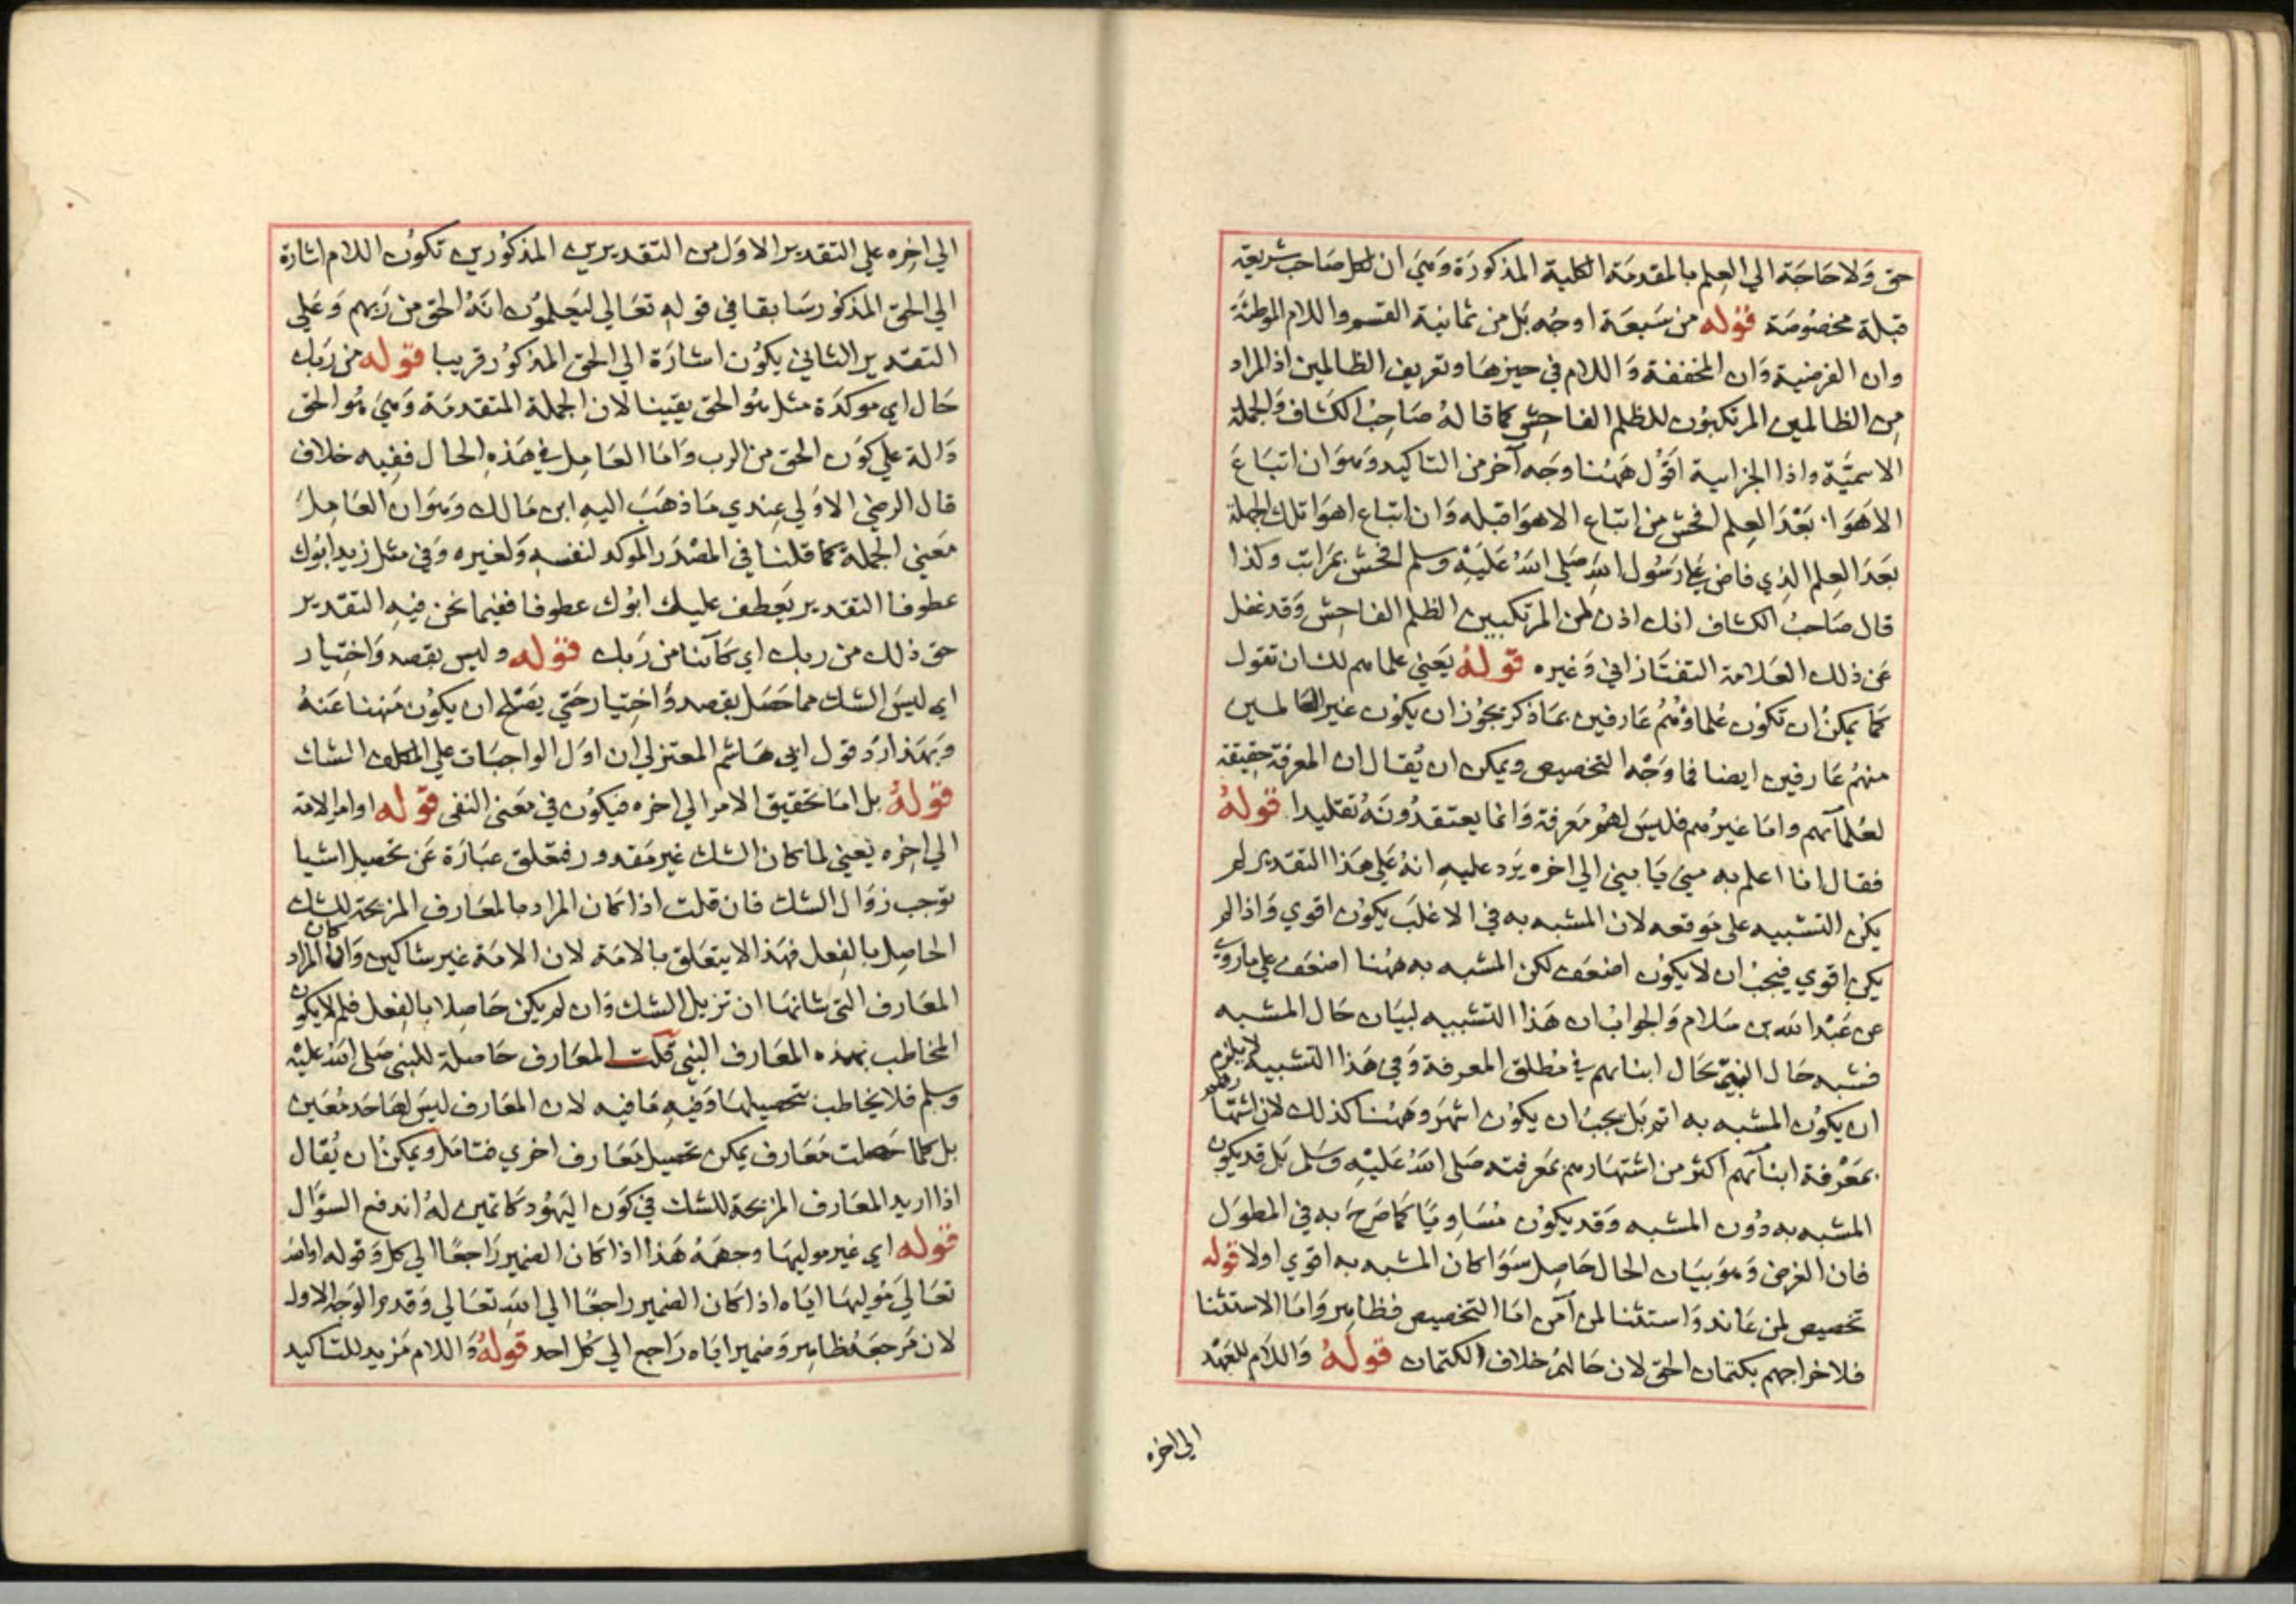 حق ولا حاجة الي العلم بالمقدمة الكلية المذكورة وهي ان لكل صاحب شريعة
قبلة مخصوصة قوله من سبعة اوجه بل من ثمانية القسم واللام الموطئة
وان الفرضية وان المخففة واللام في حيزها وتعريف الظالمين اذ المراد
من الظالمين المرتكبون للظلم الفاحش كما قاله صاحب الكشاف والجملة
الاسمية واذا الجزايية اقول ههنا وجه آخر من التاكيد وهو ان اتباع
الاهوا بعد العلم افحش من اتباع الاهوا قبله وان اتباع اهوا تلك الجملة
بعد العلم الذي فاض علي رسول الله صلي الله عليه وسلم افحش بمراتب وكذا
قال صاحب الكشاف انك اذن لمن المرتكبين الظلم الفاحش وقد غفل
عن ذلك العلامة التفتازاني وغيره قوله يعني علماهم لك ان تقول
كما يمكن ان تكون علماؤهم عارفين بما ذكر يجوز ان يكون غير العالمين
منهم عارفين ايضا فما وجه التخصيص ويمكن ان يقال ان المعرفة حقيقة
لعلمآئهم واما غيرهم فليس لهم معرفة وانما يعتقدونه تقليدا قوله
فقال انا اعلم به مني يابني الي اخره يرد عليه انه علي هذا التقدير لم
يكن التشبيه على موقعه لان المشبه به في الاغلب يكون اقوي واذا لم
يكن اقوي فيجب ان لا يكون اضعف لكن المشبه به ههنا اضعف علي ما روي
عن عبد الله بن سلام والجواب ان هذا التشبيه لبيان حال المشبه
فشبه حال النبي بحال ابنائهم في مطلق المعرفة وفي هذا التشبيه لا يلزم
ان يكون المشبه به اتم بل يجب ان يكون اشهر وههنا كذلك لان اشتهارهم
بمعرفة ابنآئهم اكثر من اشتهارهم بمعرفته صلى الله عليه وسلم بل قد يكون
المشبه به دون المشبه وقد يكون مساويا كما صرح به في المطول
فان الغرض وهو بيان الحال حاصل سوا كان المشبه به اقوي اولا قوله
تخصيص لمن عاند واستثنا لمن آمن اما التخصيص فظاهر واما الاستثنا
فلاخراجهم بكتمان الحق لان حالهم خلاف الكتمان قوله واللام للعهد
الي اخره
الي اخره علي التقدير الاول من التقديرين المذكورين تكون اللام اشارة
الي الحق المذكور سابقا في قوله تعالي ليعلمون انه الحق من ربهم وعلي
التقدير الثاني يكون اشارة الي الحق المذكور قريبا قوله من ربك
حال اي موكدة مثل هو الحق يقينا لان الجملة المتقدمة وهي هو الحق
دالة علي كون الحق من الرب واما العامل في هذه الحال ففيه خلاف
قال الرضي الاولي عندي ما ذهب اليه ابن مالك وهو ان العامل
معني الجملة كما قلنا في المصدر الموكد لنفسه ولغيره وفي مثل زيد ابوك
عطوفا التقدير يعطف عليك ابوك عطوفا ففيما نحن فيه التقدير
حق ذلك من ربك اي كآئنا من ربك قوله وليس بقصد واختيار
اي ليس الشك مما حصل بقصد واختيار حتي يصلح ان يكون منهنا عنه
وبهذا رد قول ابي هاشم المعتزلي ان اول الواجبات علي المكلف الشك
قوله بل اما تحقيق الامر الي اخره فيكون في معنى النفى قوله او امر الامة
الي اخره يعني لما كان الشك غير مقدور فمتعلق عبارة عن تحصيل اشيا
توجب زوال الشك فان قلت اذا كان المراد بالمعارف المزيحة للشك
الحاصل بالفعل فهذا لا يتعلق بالامة لان الامة غير شاكين وان كان المراد
المعارف التي شانها ان تزيل الشك وان لم يكن حاصلا بالفعل فلم لا يكون
المخاطب بهذه المعارف النبي قلت المعارف حاصلة للنبي صلى الله عليه
وسلم فلا يخاطب بتحصيلها وفيه ما فيه لان المعارف ليس لها حد معين
بل كلما حصلت معارف يمكن تحصيل معارف اخري فتامل ويمكن ان يقال
اذا اريد المعارف المزيحة للشك في كون اليهود كاتمين له اندفع السؤال
قوله اي غير موليها وجهه هذا اذا كان الضمير راجعا الي كل وقوله او الله
تعالي موليها اياه اذا كان الضمير راجعا الي الله تعالي وقدم الوجه الاول
لان مرجعه ظاهر وضمير اياه راجع الي كل احد قوله واللام مزيد للتاكيد